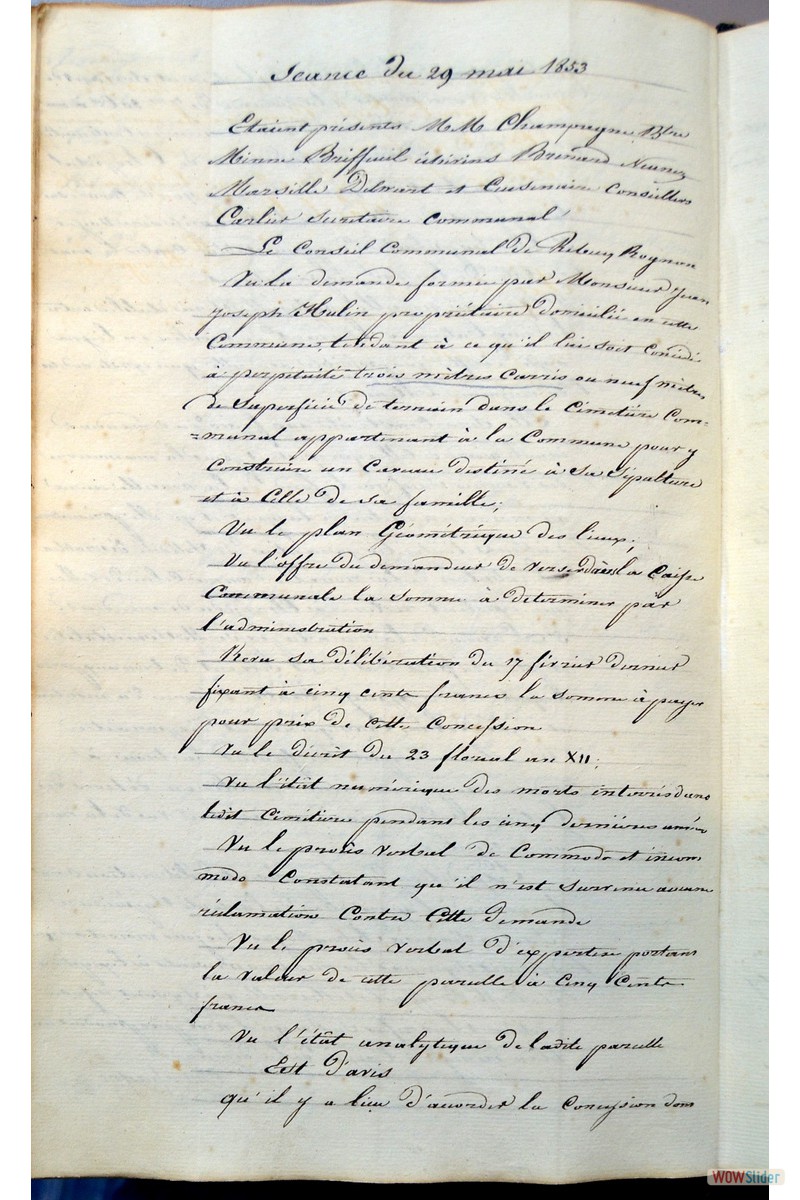 Séance du 29 mai 1853
Etaient présents MM Champagne Btre
Minne Briffeuil échevins Brenard
Marsille Delwart et Cuisenaire Conseillers
Carlier Secrétaire communal
Le Conseil Communal de Rebecq Rognon
Vu la demande formée par Monsieur Jean
Joseph Hulin propriétaire domicilié en cette
Commune, tendant à ce qu'il lui soit concédé
à perpétuité trois mètres carrés ou neuf mètres
de Superficie de terrain dans le Cimetière Com-
=munal appartenant à la Commune pour y
Construire un Caveau destiné à Sa Sépulture
et à Celle de sa famille;
Vu le plan Géométrique des lieux;
Vu l'offre du demandeur de verser dans la Caisse
Communale la somme à déterminer par
l'administration
Revu sa délibération du 17 février dernier
fixant à cinq cents francs la somme à payer
pour prix de cette Concession
Vu le décret du 23 floréal an XII;
Vu l'état numérique des morts interrés dans
ledit Cimetière pendant les cinq dernières années
Vu le procès verbal de Commodo et incom
modo Constatant qu'il n'est survenu aucune
réclamation Contre Cette demande
Vu le procès verbal d'expertise portant
la valeur de cette parcelle à Cinq Cents
francs
Vu l'état analytique de ladite parcelle
Est d'avis
qu'il y a lieu d'accorder la Concession dont
WOWSlider